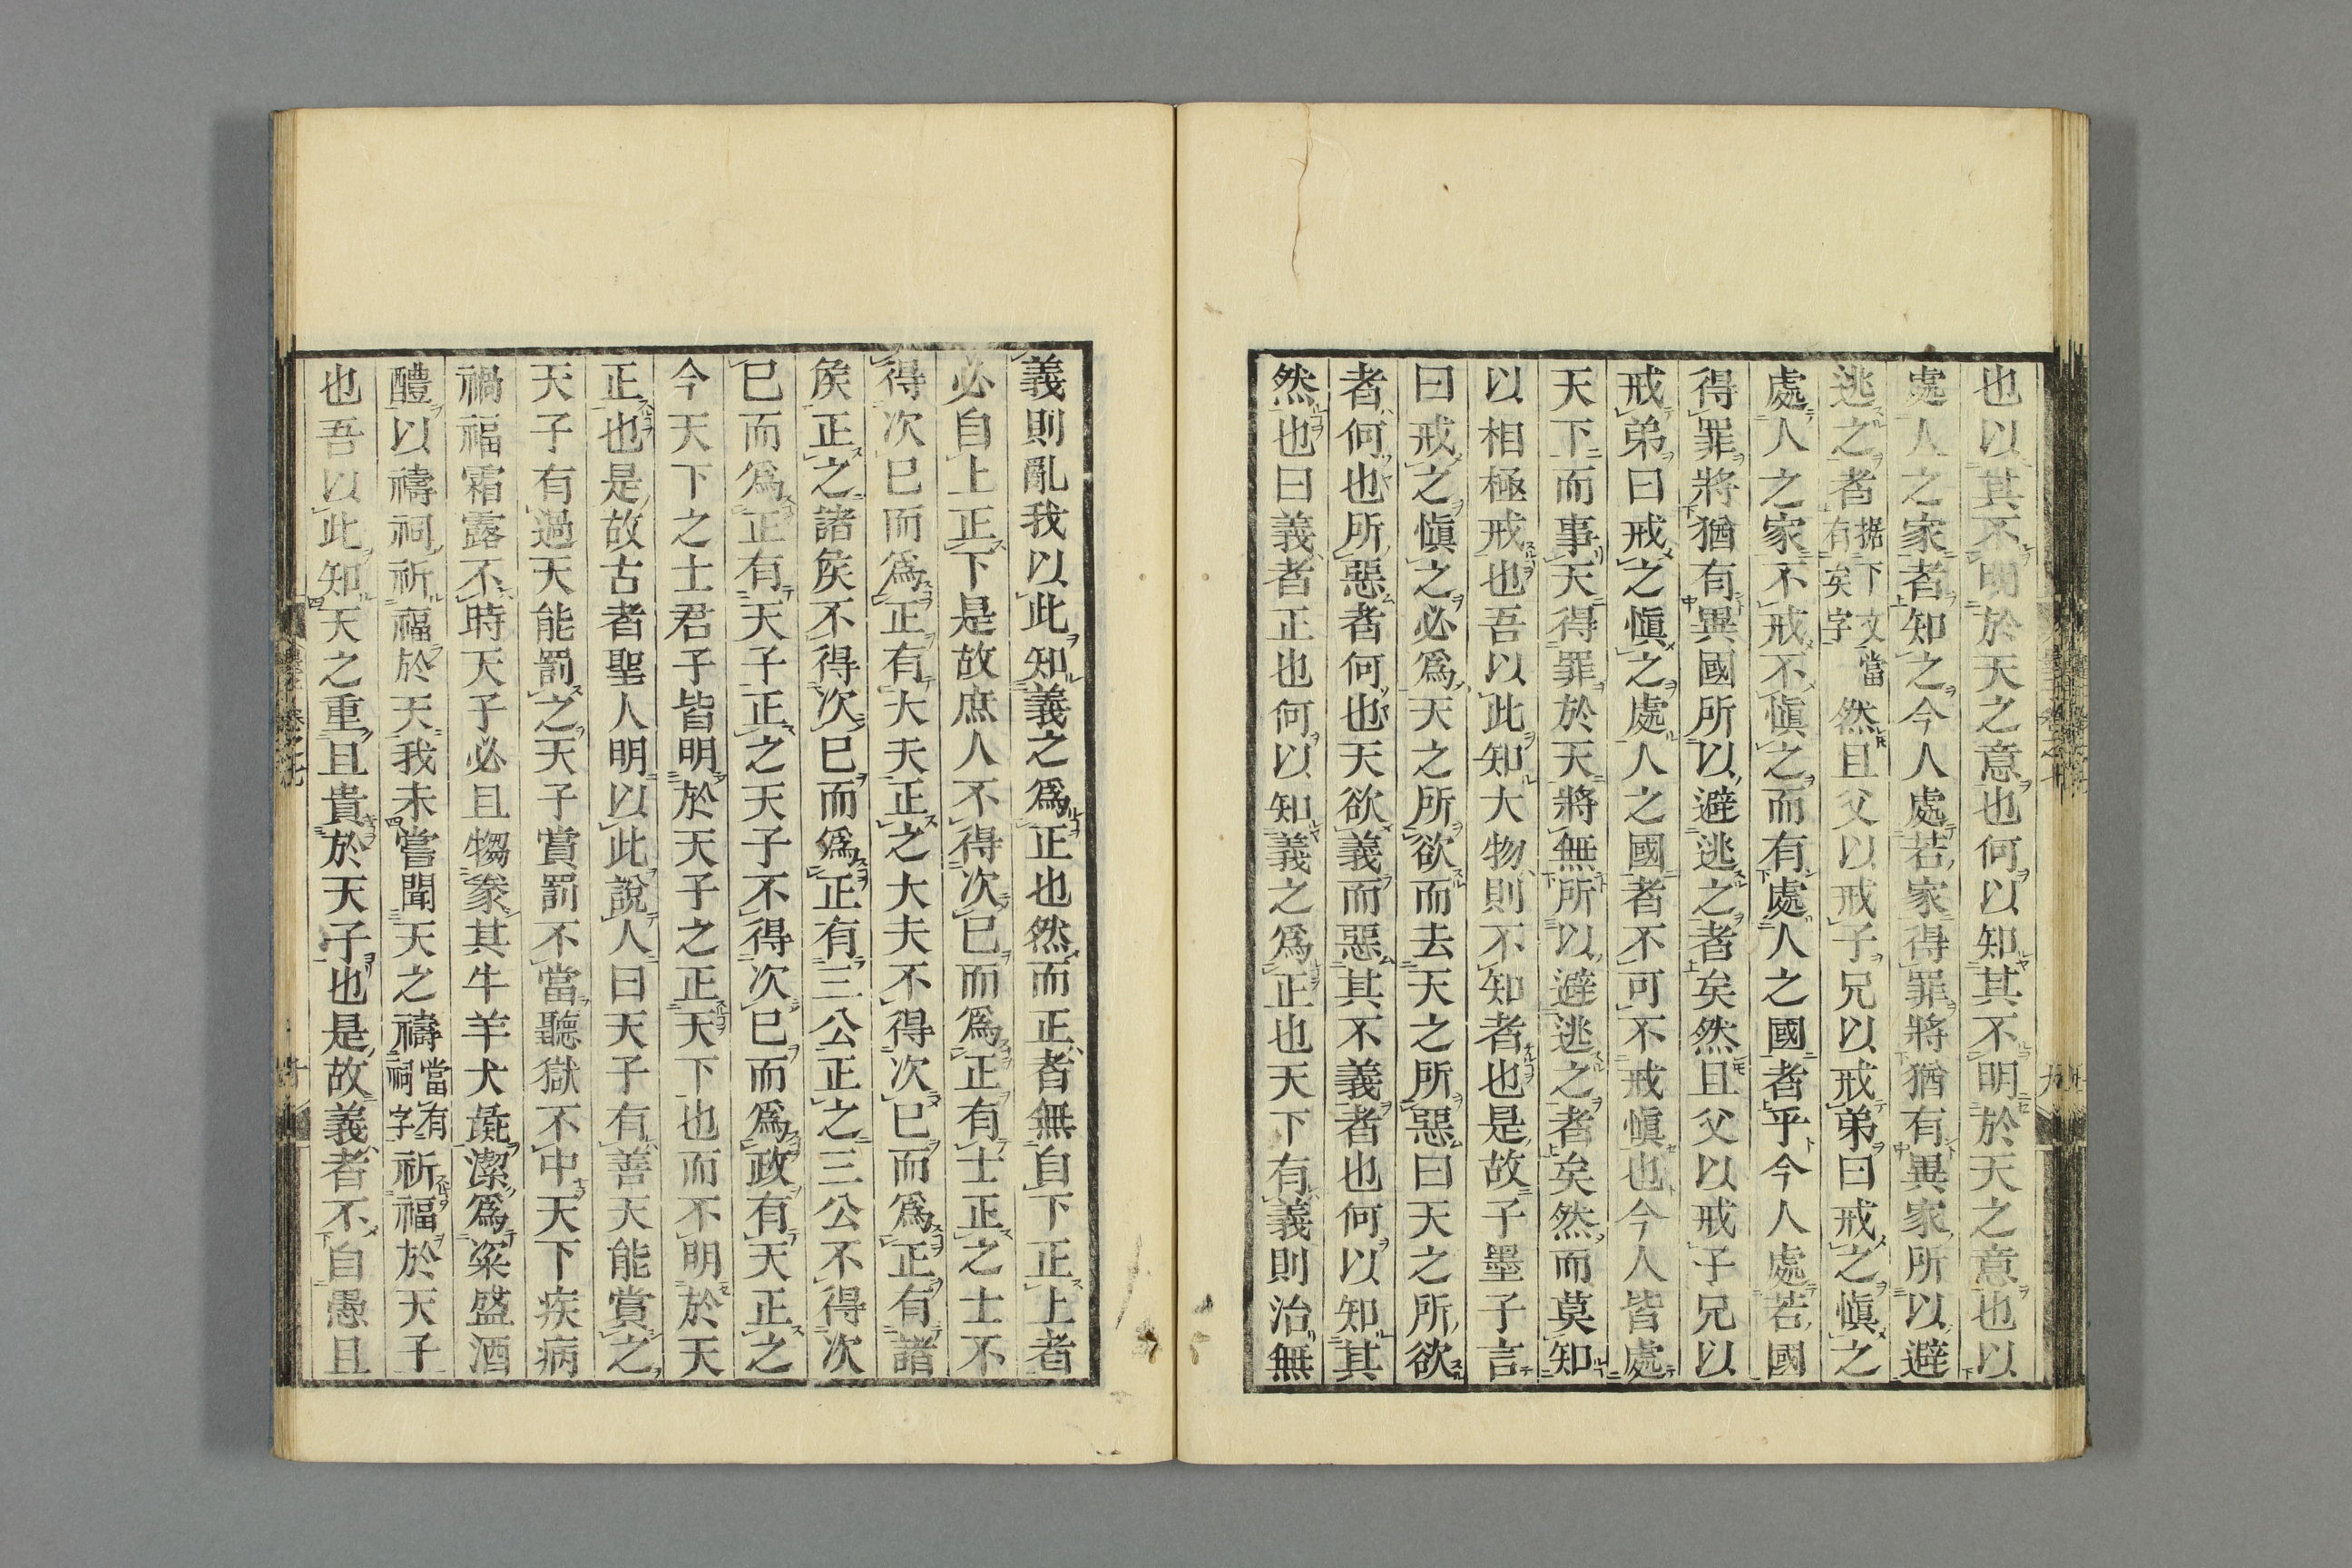 也以其不明於天之意也何以知其不明於天之意也以
處人之家者知之今人處若家得罪將猶有異家所以避
逃之者據下文當有矣字然且父以戒子兄以戒弟曰戒之愼之
處人之家不戒不愼之而有處人之國者乎今人處若國
得罪將猶有異國所以避逃之者矣然且父以戒子兄以
戒弟曰戒之愼之處人之國者不可不戒愼也今人皆處
天下而事天得罪於天將無所以避逃之者矣然而莫知
以相極戒也吾以此知大物則不知者也是故子墨子言
曰戒之愼之必爲天之所欲而去天之所惡曰天之所欲
者何也所惡者何也天欲義而惡其不義者也何以知其
然也曰義者正也何以知義之爲正也天下有義則治無
義則亂我以此知義之爲正也然而正者無自下正上者
必自上正下是故庶人不得次已而爲正有士正之士不
得次已而爲正有大夫正之大夫不得次已而爲正有諸
矦正之諸矦不得次已而爲正有三公正之三公不得次
已而爲正有天子正之天子不得次已而爲政有天正之
今天下之士君子皆明於天子之正天下也而不明於天
正也是故古者聖人明以此說人曰天子有善天能賞之
天子有過天能罰之天子賞罰不當聽獄不中天下疾病
禍福霜露不時天子必且犓豢其牛羊犬彘潔爲粢盛酒
醴以禱祠祈福於天我未嘗聞天之禱當有祠字祈福於天子
也吾以此知天之重且貴於天子也是故義者不自愚且